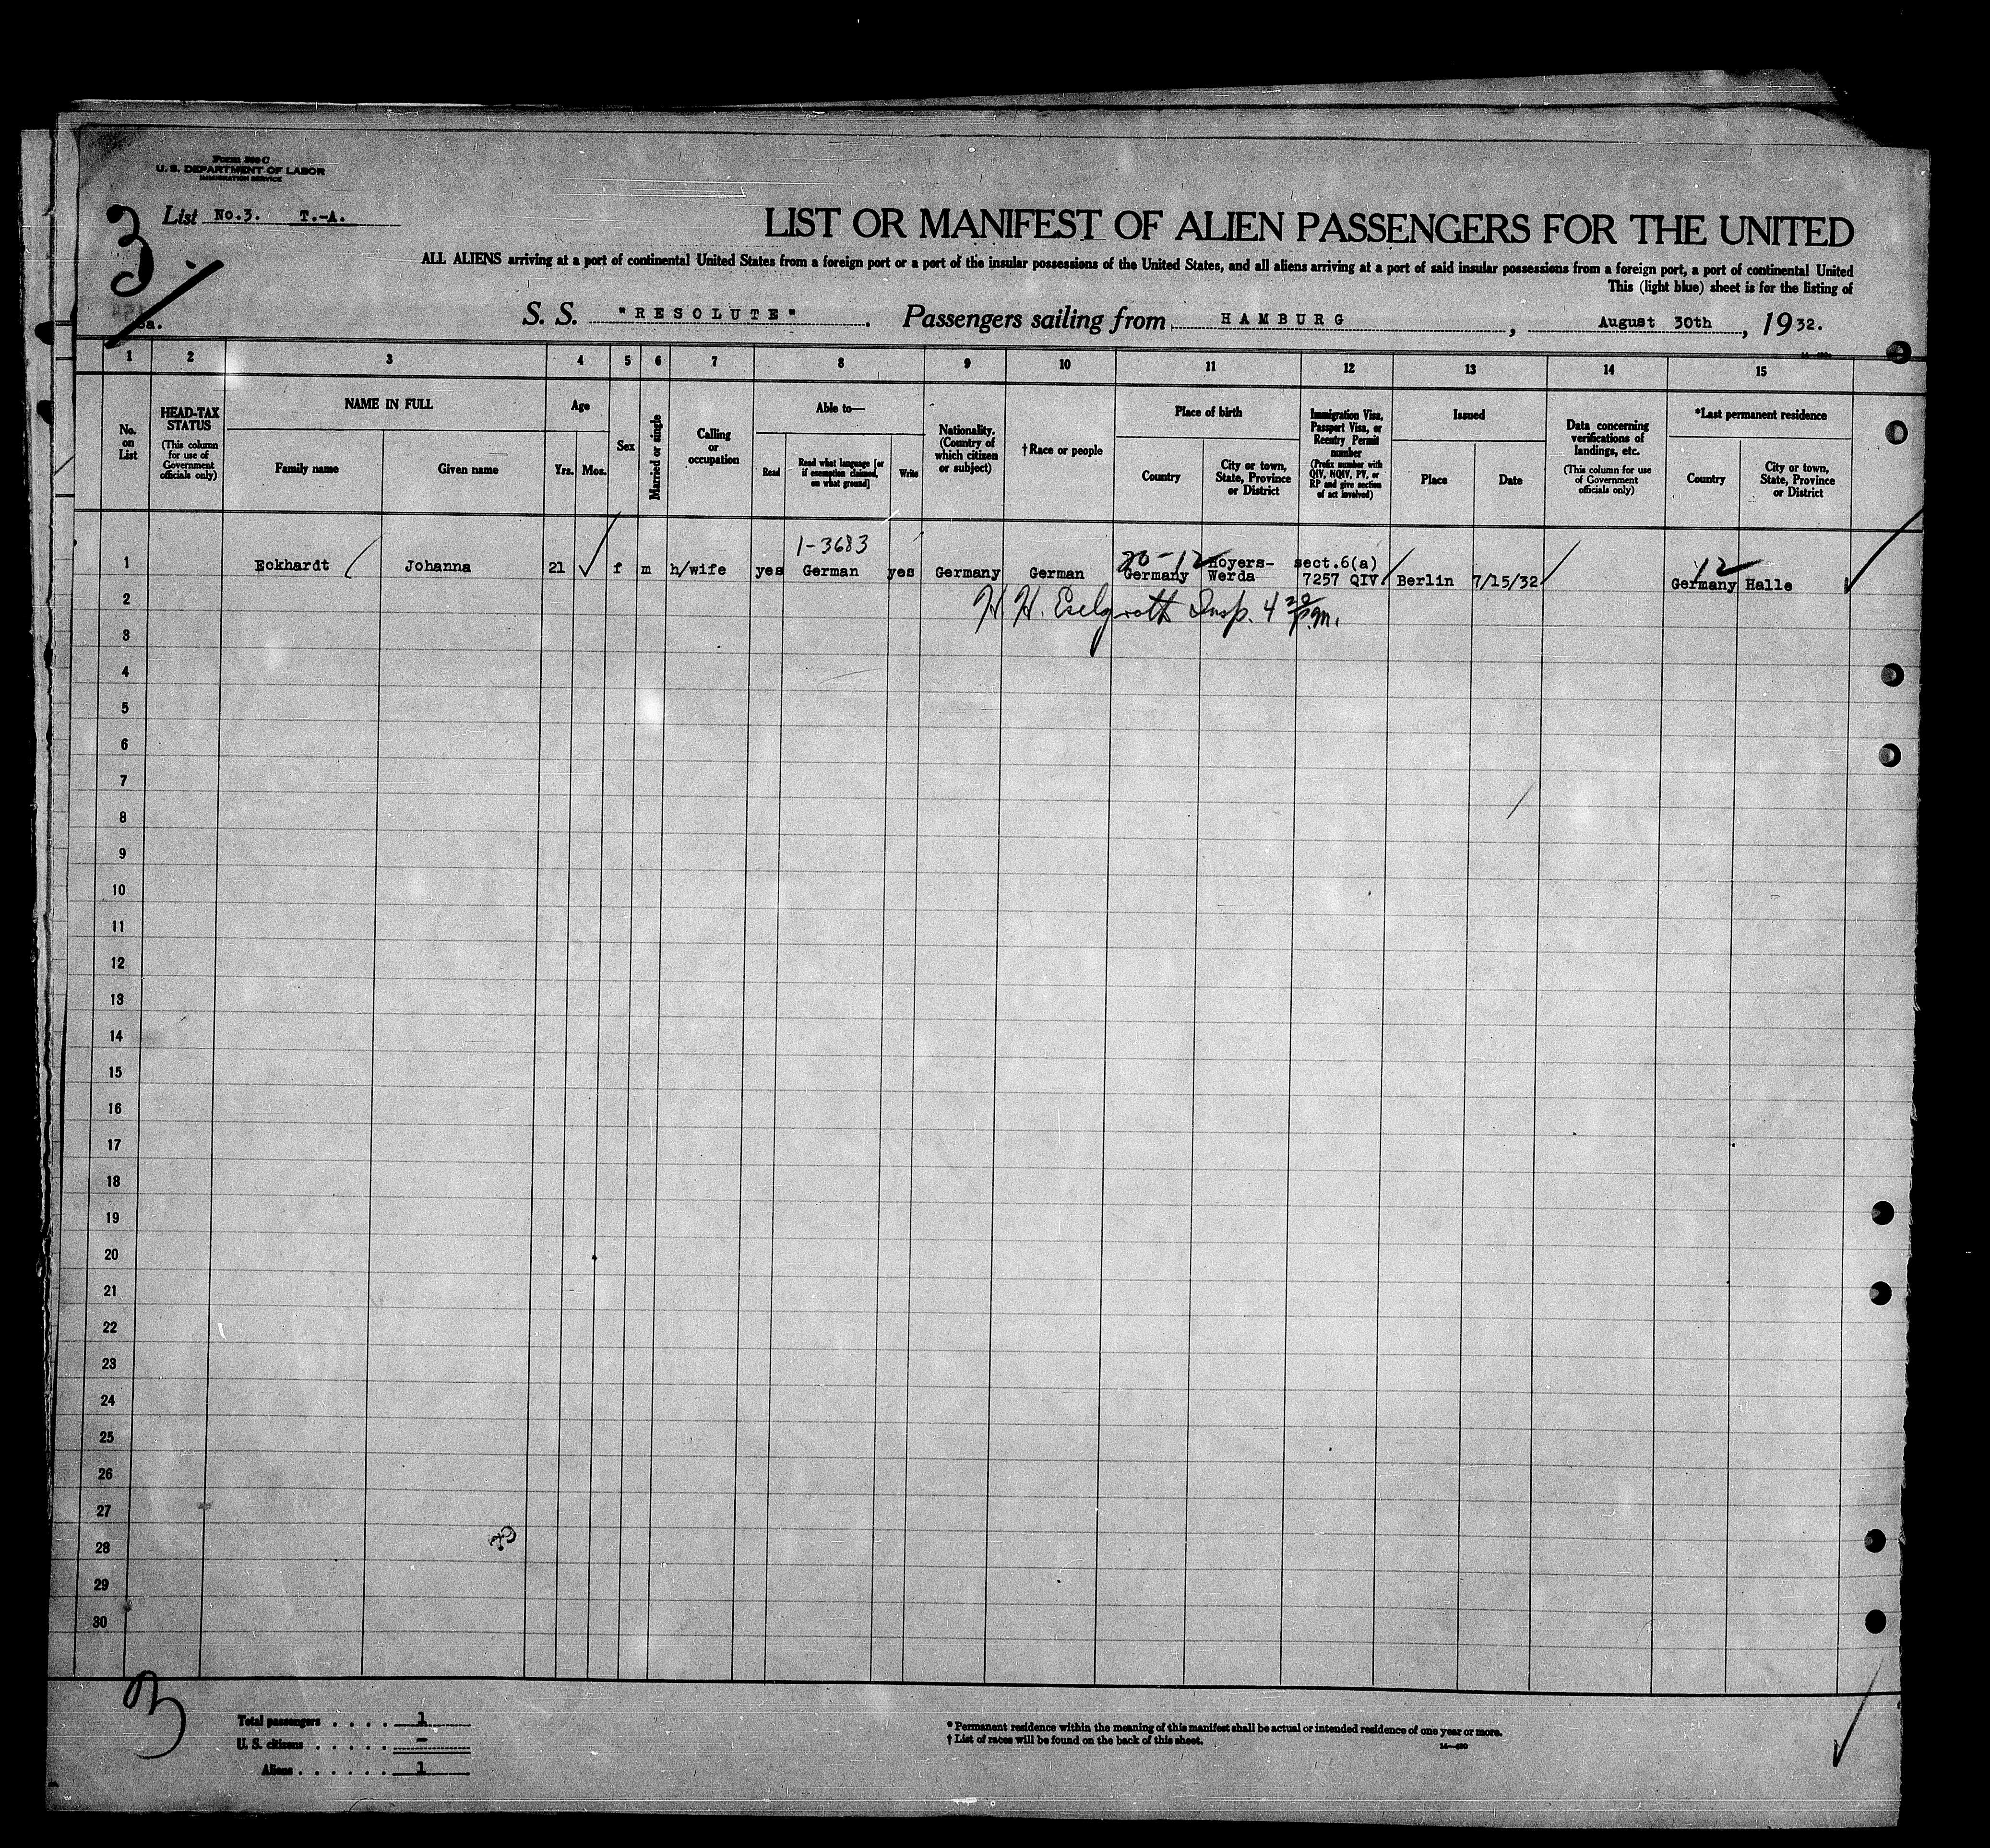 Form 500 C
U. S. DEPARTMENT OF LABOR
IMMIGRATION SERVICE
List No.3. T.-A.
3
LIST OR MANIFEST OF ALIEN PASSENGERS FOR THE UNITED
ALL ALIENS arriving at a port of continental United States from a foreign port or a port of the insular possessions of the United States, and all aliens arriving at a port of said insular possessions from a foreign port, a port of continental United
This (light blue) sheet is for the listing of
S. S. "RESOLUTE". Passengers sailing from HAMBURG, August 30th, 1932.
1 2 3 4 5 6 7 8 9 10 11 12 13 14 15
No. on List
HEAD-TAX STATUS
(This column for use of Government officials only)
NAME IN FULL
Family name
Given name
Age
Yrs. Mos.
Sex
Married or single
Calling or occupation
Able to—
Read
Read what language [or if exemption claimed, on what ground]
Write
Nationality. (Country of which citizen or subject)
†Race or people
Place of birth
Country
City or town, State, Province or District
Immigration Visa, Passport Visa, or Reentry Permit number
(Prefix number with QIV, NQIV, PV, or RP and give section of act involved)
Issued
Place
Date
Data concerning verifications of landings, etc.
(This column for use of Government officials only)
*Last permanent residence
Country
City or town, State, Province or District
1-3683
20-12
12
1 Eckhardt Johanna 21 f m h/wife yes German yes Germany German Germany Hoyers-Werda sect.6(a) 7257 QIV. Berlin 7/15/32 Germany Halle
H. H. Insp. 4 30 P.M.
2
3
4
5
6
7
8
9
10
11
12
13
14
15
16
17
18
19
20
21
22
23
24
25
26
27
28
29
30
3
Total passengers . . . . 1
U. S. citizens . . . . . -
Aliens . . . . . . 1
* Permanent residence within the meaning of this manifest shall be actual or intended residence of one year or more.
† List of races will be found on the back of this sheet.